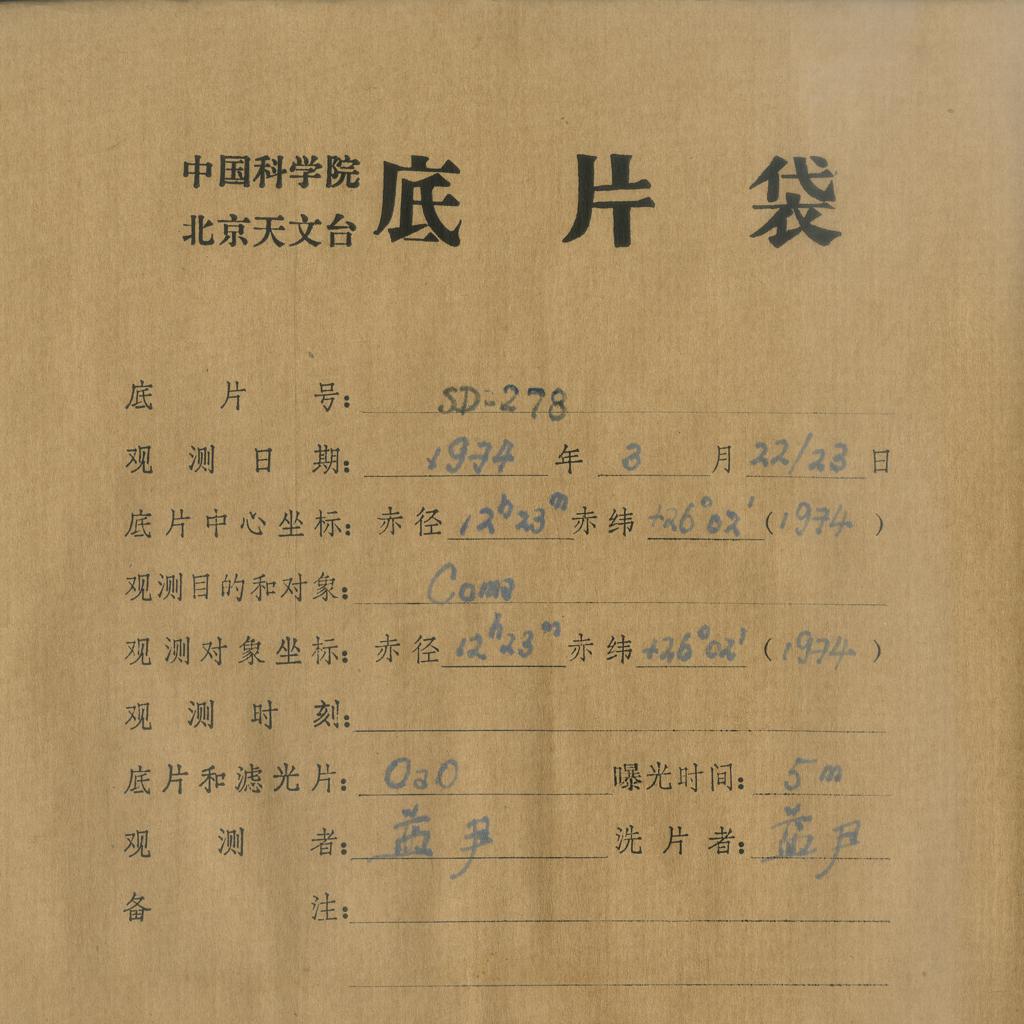 中国科学院
北京天文台
底片袋
底片号: SD-278
观测日期: 1974 年 3 月 22/23 日
底片中心坐标: 赤径 12h23m 赤纬 +26°02′ (1974)
观测目的和对象: Coma
观测对象坐标: 赤径 12h23m 赤纬 +26°02′ (1974)
观测时刻:
底片和滤光片: OaO 曝光时间: 5m
观测者: 尹
洗片者: 尹
备注: